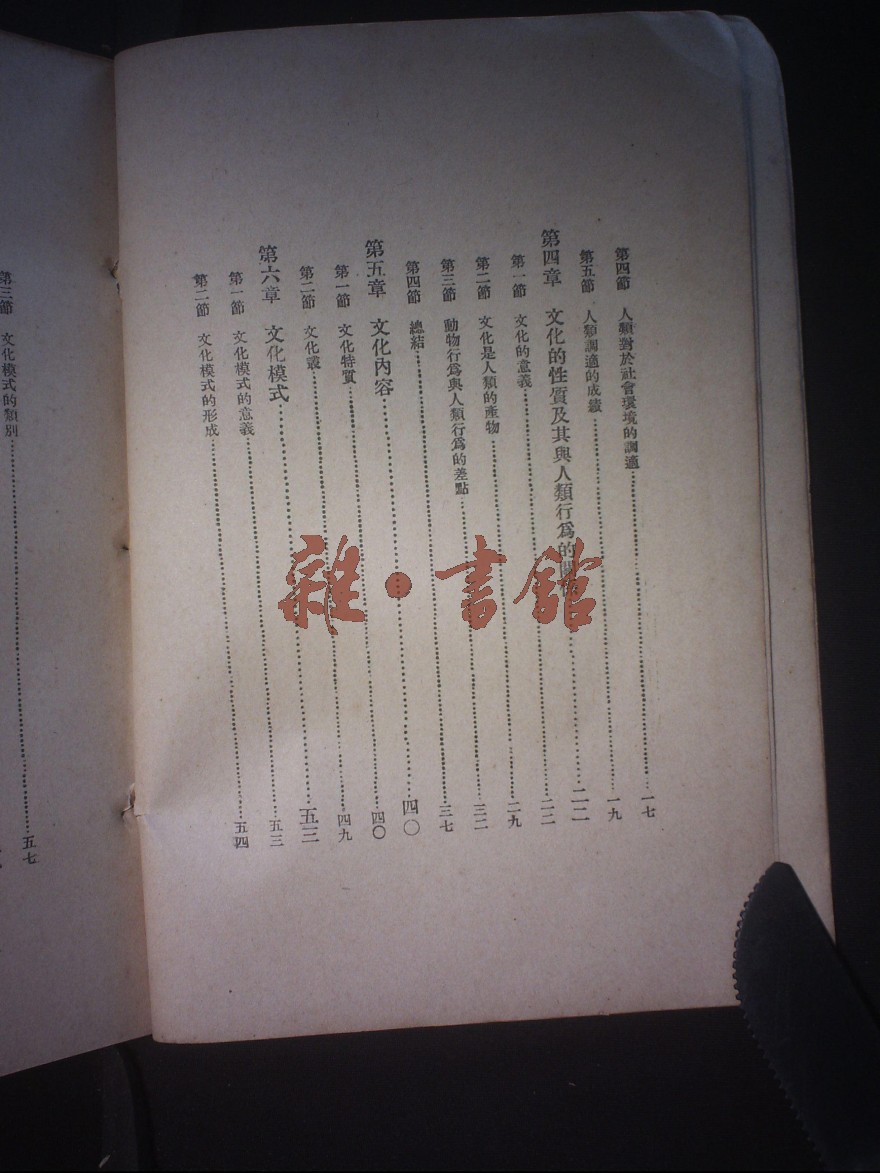 第四節 人類對於社會環境的調適…………一七
第五節 人類調適的成績…………一九
第四章 文化的性質及其與人類行爲的關…………二二
第一節 文化的意義…………二二
第二節 文化是人類的產物…………二九
第三節 動物行爲與人類行爲的差點…………三二
第四節 總結…………三七
第五章 文化內容…………四〇
第一節 文化特質…………四〇
第二節 文化叢…………四九
第六章 文化模式…………五三
第一節 文化模式的意義…………五三
第二節 文化模式的形成…………五四
第三節 文化模式的類別…………五七
雜·書館